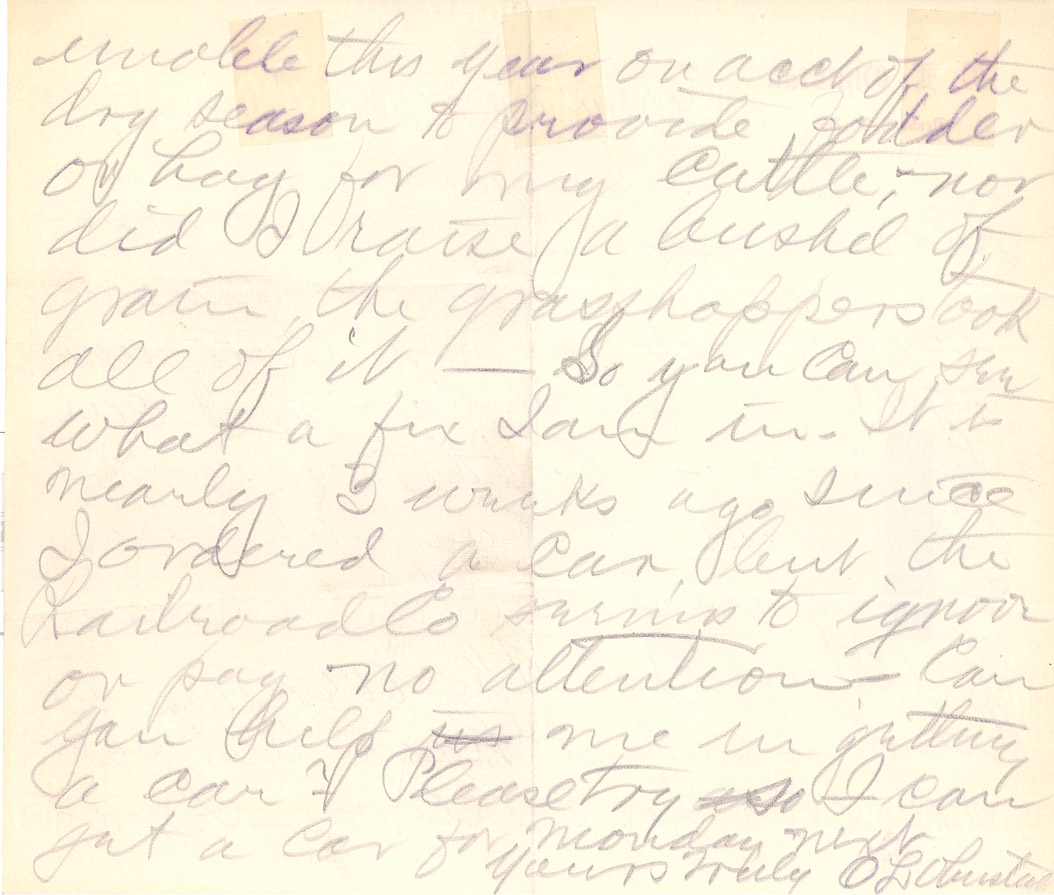 unable this year on acct of the
dry season to provide fodder
or hay for my cattle, nor
did I raise a bushel of
grain, the grasshoppers took
all of it — So you can see
what a fix I am in. It is
nearly 3 weeks ago since
I ordered a car, but the
Railroad Co seems to ignoor
or pay no attention — Can
you help us me in getting
a car? Please try so I can
get a car for monday next
yours truly O L